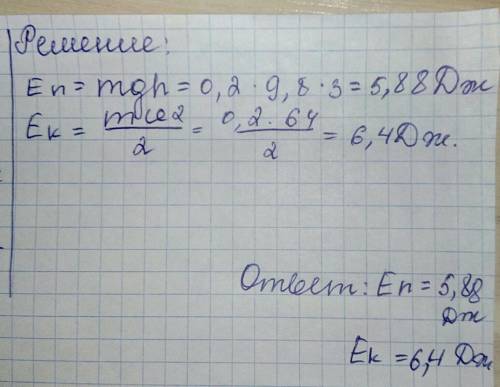 Решение:
Eп = mgh = 0,2 · 9,8 · 3 = 5,88 Дж
Eк = mv2/2 = 0,2 · 64/2 = 6,4 Дж.
Ответ: Eп = 5,88
Дж
Eк = 6,4 Дж